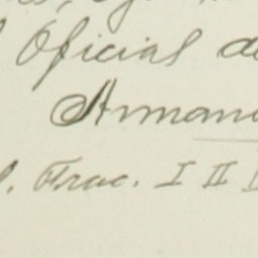 Oficial de
Armand
Frac. I II